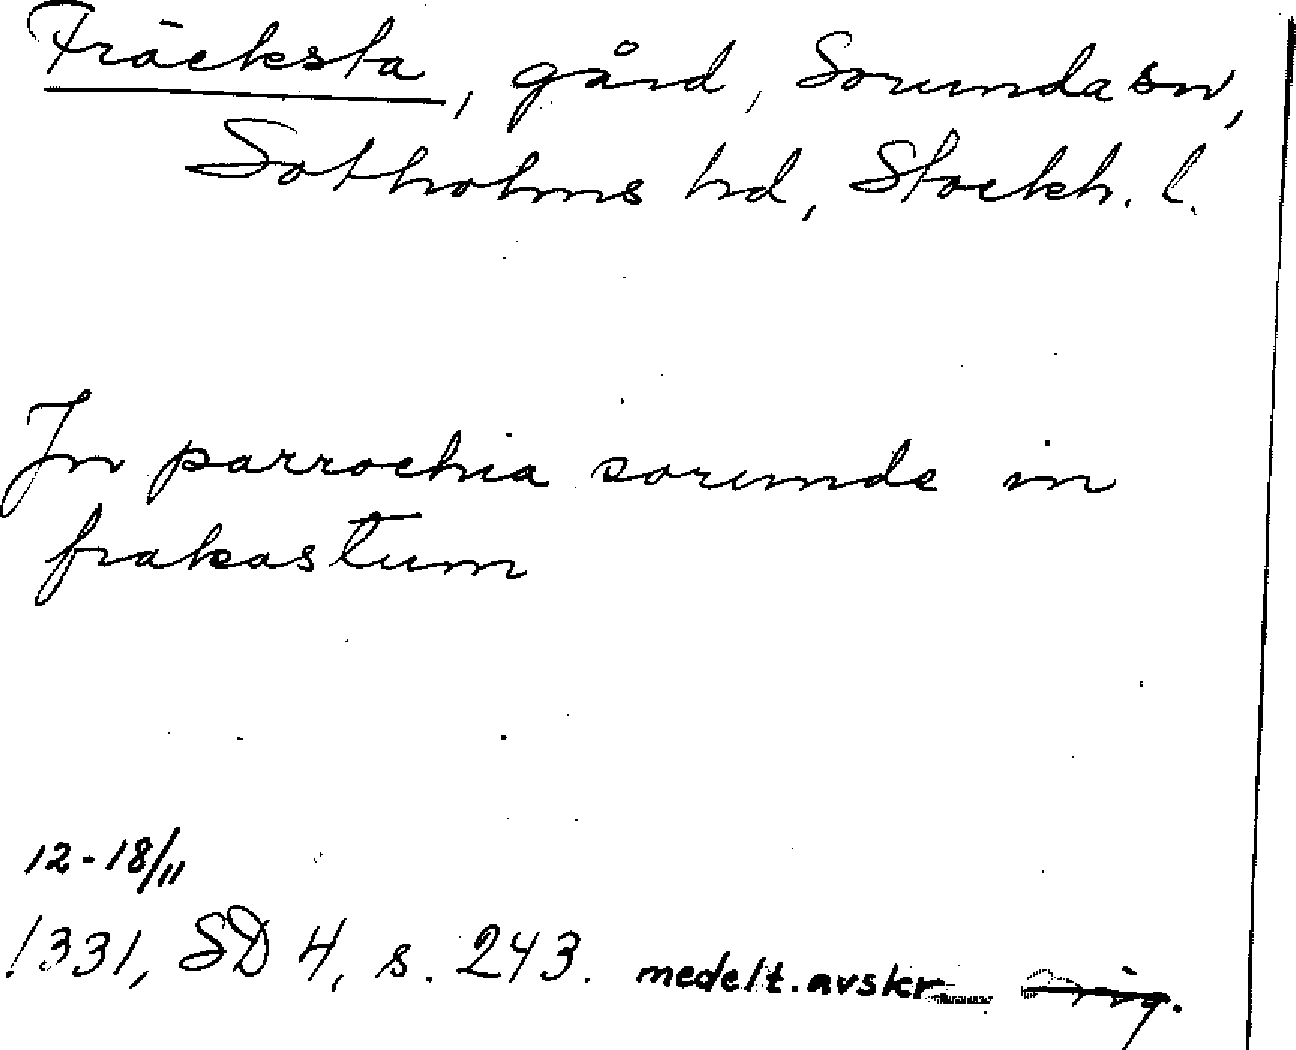 Fräcksta, gård, Sorunda sn,
Sotholms hd, Stockh. l.
In parrochia sorunde in
frakastum
12-18/11
1331, SD 4, s. 243. medelt. avskr. Orig.